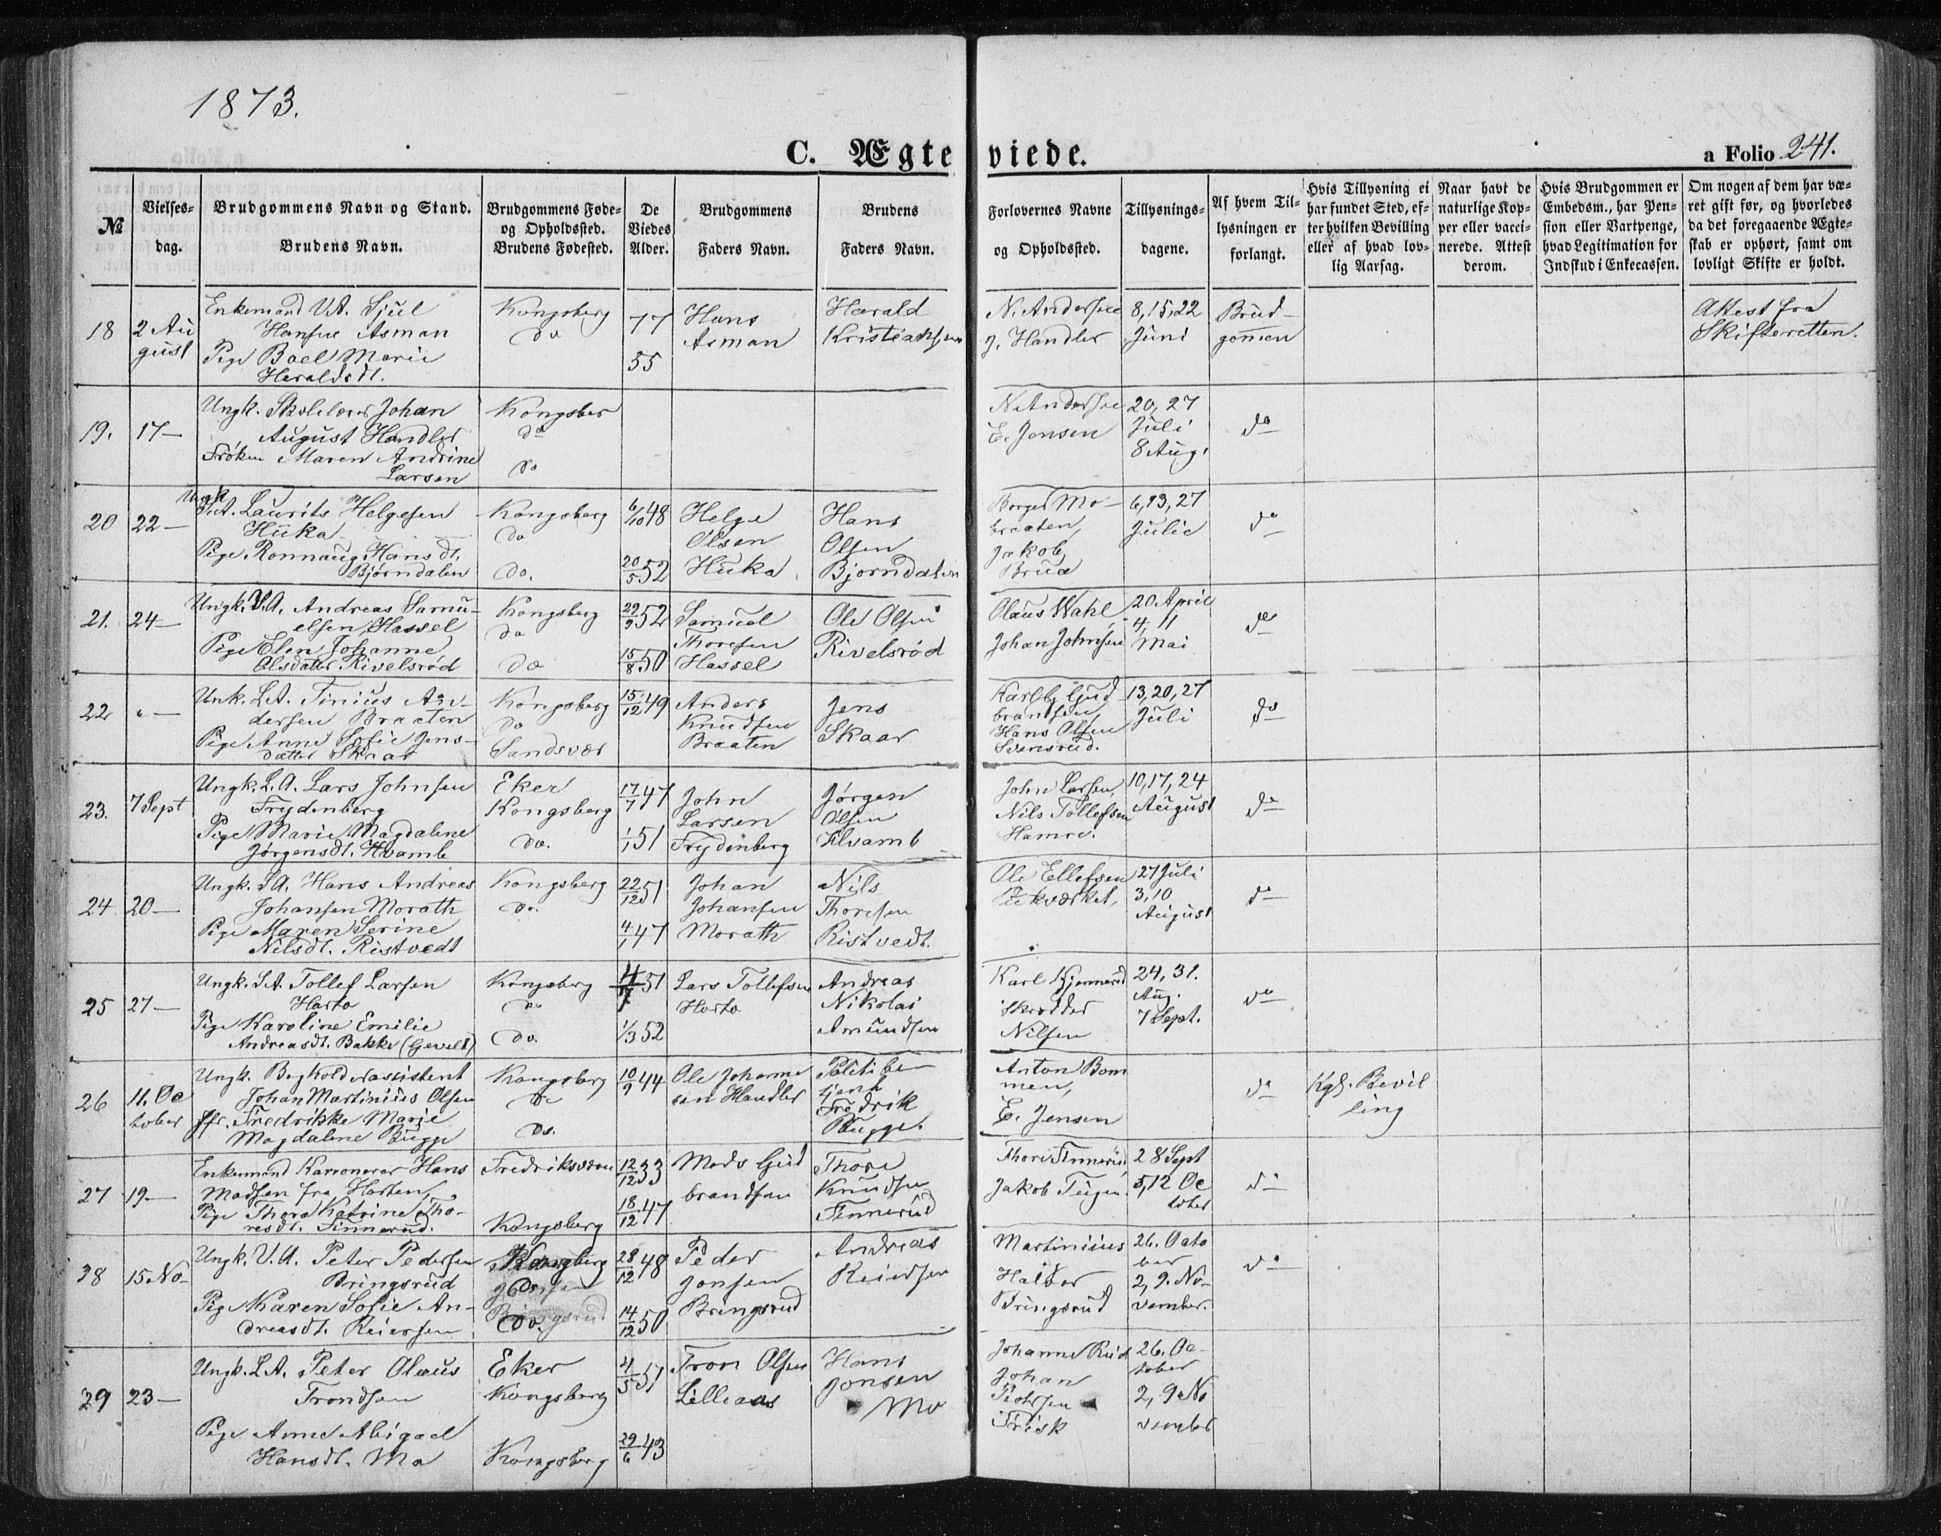 1873.
C. Ægteviede.
a Folio 241.
№
Vielses-
dag.
Brudgommens Navn og Stand.
Brudens Navn.
Brudgommens Føde-
og Opholdssted.
Brudens Fødested.
De
Viedes
Alder.
Brudgommens
Faders Navn.
Brudens
Faders Navn.
Forlovernes Navne
og Opholdssted.
Tillysnings-
dagene.
Af hvem Til-
lysningen er
forlangt.
Hvis Tillysning ei
har fundet Sted, ef-
ter hvilken Bevilling
eller af hvad lov-
lig Aarsag.
Naar havt de
naturlige Kop-
per eller vacci-
nerede. Attest
derom.
Hvis Brudgommen er
Embedsm., har Pen-
sion eller Vartpenge,
hvad Legitimation for
Indskud i Enkecassen.
Om nogen af dem har væ-
ret gift før, og hvorledes
da det foregaaende Ægte-
skab er ophørt, samt om
lovligt Skifte er holdt.
18
2 Au
gust
Enkemand V.A. Sjul
Hansen Asman
Pige Boel Marie
Heraldsdt.
Kongsberg
do
77
55
Hans
Asman
Harald
Kristiansen
N. Andersen
J. Handler
8, 15, 22
Juni
Brud-
gomen
Attest fra
Skifteretten.
19.
17 —
Ungk. Skolelærer Johan
August Handler
Frøken Maren Andrine
Larsen
Kongsber
do
do
N. Andersen
E. Jensen
20, 27
Juli
8 Aug.
do
20
22 —
Ungk
V.A. Laurits Helgesen
Huka
Pige Ronnaug Hansdt.
Bjørndalen
Kongsberg
do
do.
6/10 48
20/5 52
Helge
Olsen
Huka
Hans
Olsen
Bjørndalen
Borger Mo-
braaten,
Jakob
Brua
6, 13, 27
Julie
do
21.
24 —
Ungk. V.A. Andreas Samu-
elsen Hassel
Pige Elen Johanne
Olsdatter Rivelsrød
Kongsberg
do
do
29/9 52
15/8 50
Samuel
Thoresen
Hassel
Ole Olsen
Rivelsrød
Olaus Wahl
Johan Johnsen
20 April
4, 11
Mai
do
22
" —
Unk. L.A. Tinius An-
dersen Braaten
Pige Anne Sofie Jens-
datter Skaar
Kongsberg
do
Sandsvær
15/12 49
Anders
Knudsen
Braaten
Jens
Skaar
Karl Gud
brandsen,
Hans Olsen
Svensrud.
13, 20, 27
Juli
do
23.
7 Sept
Ungk. L.A. Lars Johnsen
Frydenberg
Pige Marie Magdalene
Jørgensdt. Hvamb
Eker
Kongsberg
do.
17/7 47
1/1 51
John
Larsen
Frydenberg
Jørgen
Olsen
Hvamb
John Larsen,
Nils Tollefsen
Hamre.
10, 17, 24
August
do
24
20 —
Ungk. S.A. Hans Andreas
Johansen Morath
Pige Maren Serine
Nilsdt. Ristvedt
Kongsberg
do.
22/12 51
4/1 47
Johan
Johansen
Morath
Nils
Thoresen
Ristvedt.
Ole Ellefsen
Pukværket,
27 Juli
3, 10
August
do
25
27 —
Ungk. S.A. Tollef Larsen
Harto
Pige Karoline Emilie
Andreasdt. Bakke (Gevelt)
Kongsberg
do
do.
4/7 51
1/3 52
Lars Tollefsen
Horto
Andreas
Nikolai
Amundsen
Karl Kjennerud
Skrædder
Nilsen
24, 31.
Aug.
7 Sept.
do
26
11. Oc
tober
Ungk. Bogholderassistent
Johan Martinius Olsen
ffr. Fredrikke Marie
Magdalene Bugge
Kongsberg
do
do.
10/9 44
Ole Johanne
sen Handler
Politibe
tjent
Fredrik
Bugge.
Anton Bom
men,
E. Jensen
do
Kgl. Bevil
ling
27
19 —
Enkemand Hans
Madsen fra Horten,
Pige Thora Katrine Tho-
resdt. Tinnerud.
Fredriksværn
Kongsberg
12/12 33
18/12 47
Mads Gud
brandsen
Thore
Knudsen
Tinnerud
Thore Tinnerud
Jakob
28 Sept
5, 12 Oc
tober
do
38
15 No-
Ungk. V.A. Peter Pedersen
Bringsrud
Pige Karen Sofie An-
dreasdt. Reiersen
Kongberg
do.
do.
28/12 48
14/12 50
Peder
Jonsen
Bringsrud
Andreas
Reiersen
Martinius
Halvor
Bringsrud
26. Octo
ber
2, 9. No-
vember.
do
39
23 —
Ungk. L.A. Peter Olaus
Trondsen
Pige Anne Abigael
Hansdt. Mo
Eker
Kongsberg
Kongsberg
4/5 51
29/6 43
Tron Olsen
Lilleaas
Hans
Jonsen
Mo
Johanne Rud
Johan
Frisk
26. Oc-
tober
2, 9 No
vember